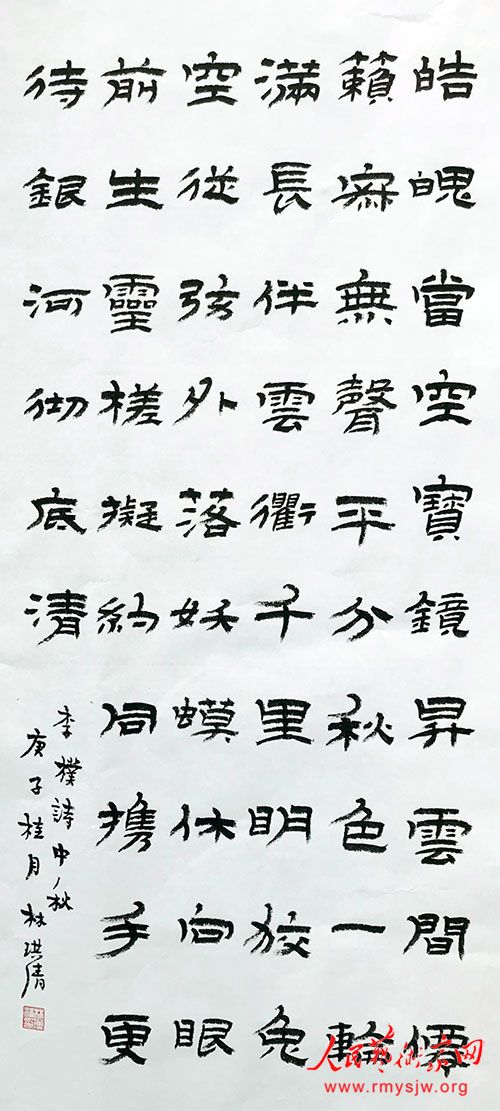 皓魄當空寶鏡昇雲間僊
籟寂無聲平分秋色一輪
滿長伴雲衢千里明狡兔
空從弦外落妖蟆休向眼
前生靈槎擬約同攜手更
待銀河彻底清
李樸詩中秋
庚子桂月 林
人民藝術家网
www.rmysjw.org